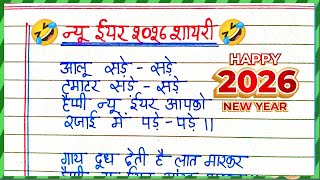 न्यू ईयर २०२६ शायरी
आलू सड़े - सड़े
टमाटर संडे - सड़े
हैप्पी न्यू ईयर आपको
रजाई में पड़े - पड़े ।।
गाय दूध देती है लात मारकर
HAPPY
2026
NEW YEAR